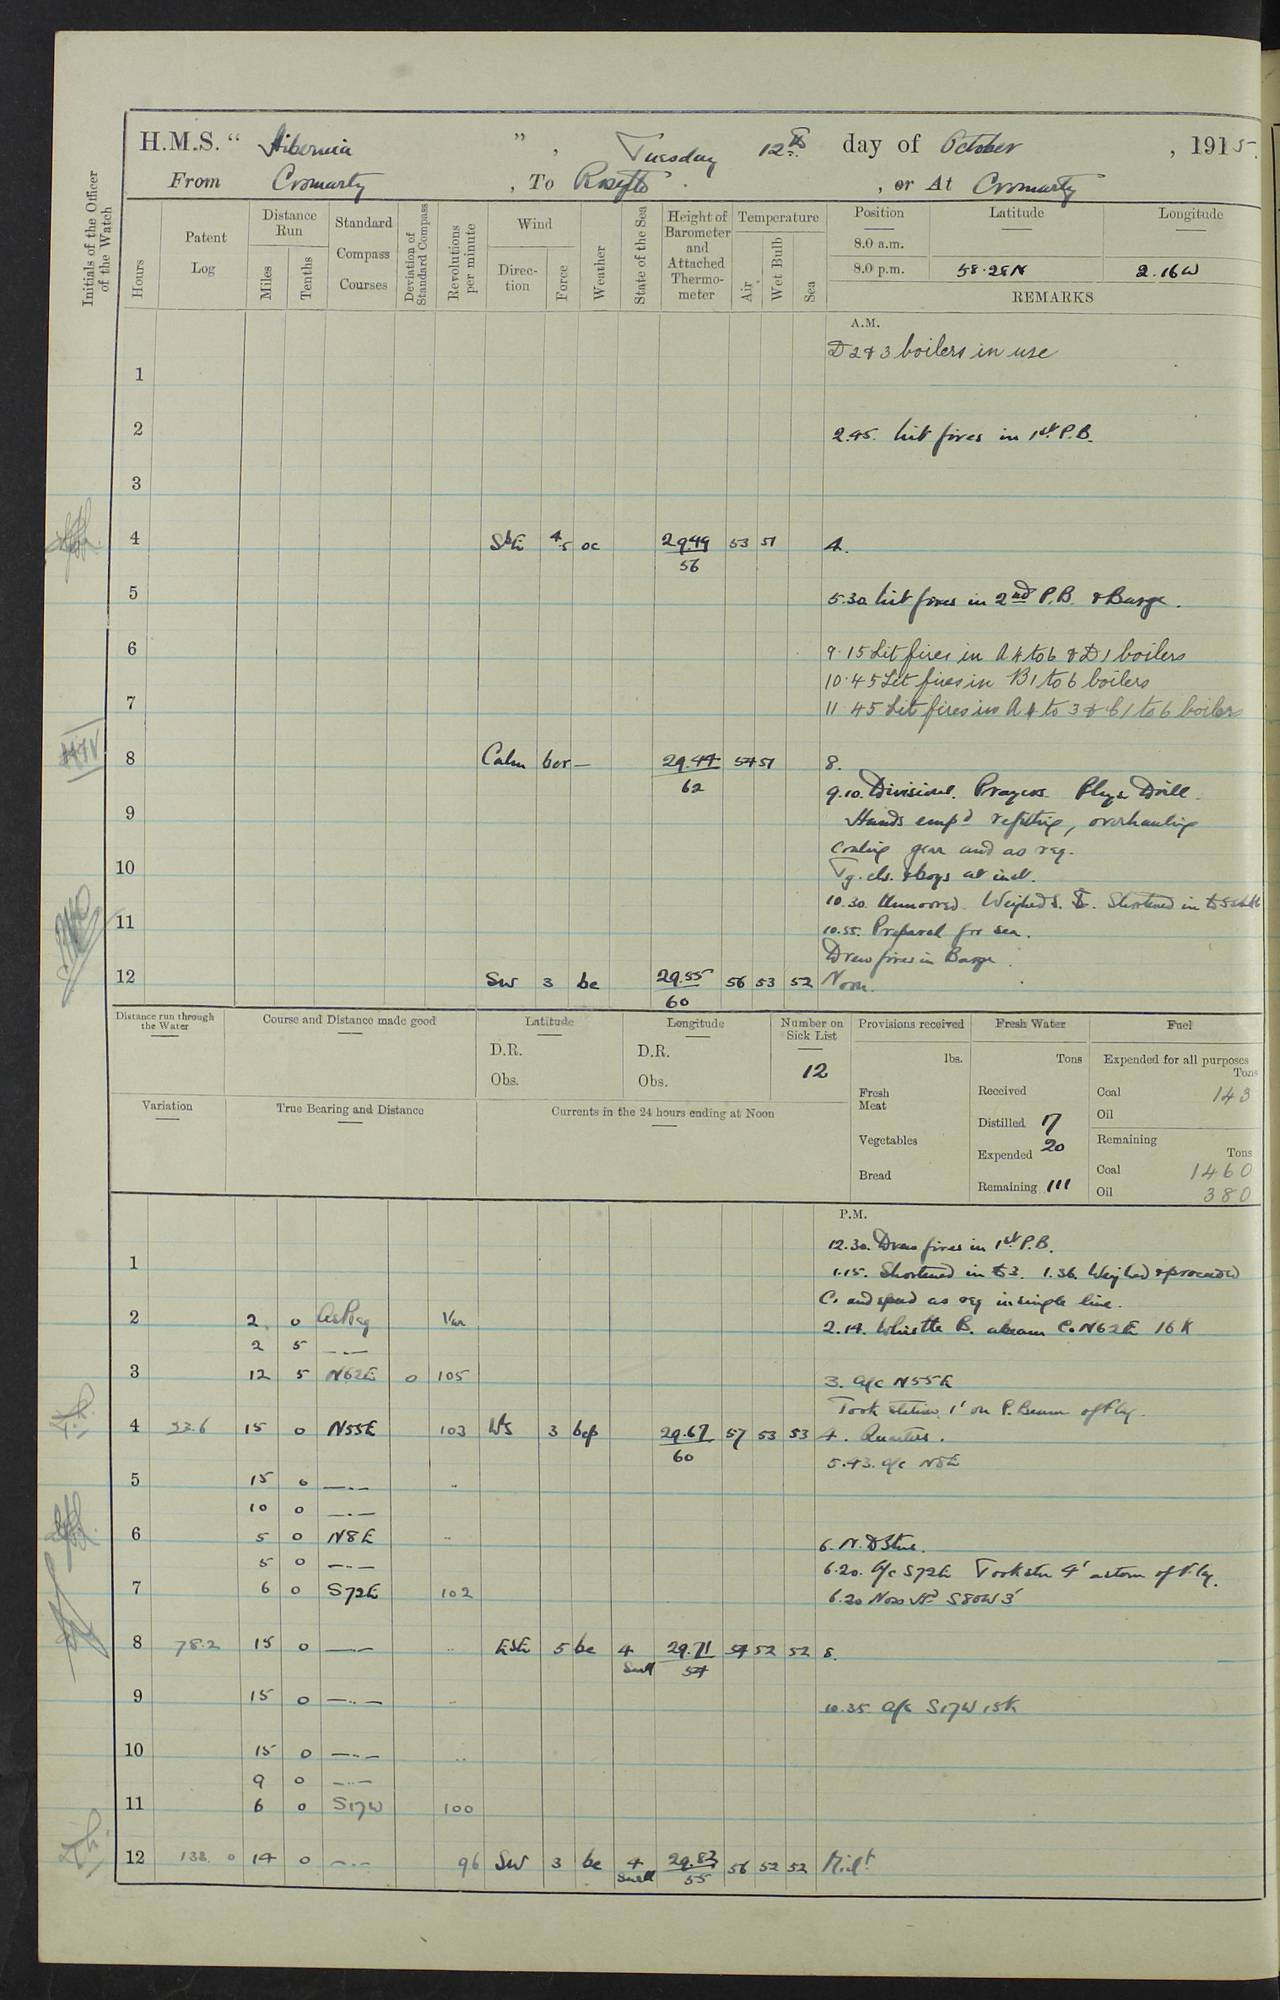 H.M.S. " Hibernia ", Tuesday 12th day of October, 1915.
From Cromarty, To Rosyth. , or At Cromarty
Initials of the Officer of the Watch
Hours
Patent Log
Distance Run
Miles
Tenths
Standard Compass Courses
Deviation of Standard Compass
Revolutions per minute
Wind
Direction
Force
Weather
State of the Sea
Height of Barometer and Attached Thermometer
Temperature
Air
Wet Bulb
Sea
Position Latitude Longitude
8.0 a.m.
8.0 p.m. 58.28N 2.16W
REMARKS
A.M.
D 2 & 3 boilers in use
1
2
2.45. Lit fires in 1st P.B.
3
4 SbE 4.5 oc 29.49 53 51 4.
56
5 5.30 Lit fires in 2nd P.B. & Barge.
6 9.15 Lit fires in A 4 to 6 & D 1 boilers
10.45 Lit fires in B 1 to 6 boilers
7 11 45 Lit fires in A 1 to 3 & C 1 to 6 boilers
8 Calm bcr — 29.44 54 51 8.
62
9.10. Divisions. Prayers. Phys Drill.
9 Hands emp'd refitting, overhauling
coaling gear and as req.
10 Tg. cls. & boys at inst.
10.30. Unmoored. Weighed S. Shortened in to 5
11 10.55. Prepared for sea.
Drew fires in Barge.
12 SW 3 bc 29.55 56 53 52 Noon.
60
Distance run through the Water
Course and Distance made good
Latitude
D.R.
Obs.
Longitude
D.R.
Obs.
Number on Sick List
12
Provisions received
lbs.
Fresh Meat
Vegetables
Bread
Fresh Water
Tons
Received
Distilled 7
Expended 20
Remaining 111
Fuel
Expended for all purposes
Tons
Coal 143
Oil
Remaining
Tons
Coal 1460
Oil 380
Variation
True Bearing and Distance
Currents in the 24 hours ending at Noon
P.M.
12.30. Drew fires in 1st P.B.
1 1.15. Shortened in to 3. 1.36. Weighed & proceeded
Co. and speed as req in single line.
2 2 0 As Req Var 2.14. Whistle B. abeam Co. N62E 16K
2 5 —..—
3 12 5 N62E 0 105 3. a/c N55E
Took station 1' on P. Beam of Flag.
4 33.6 15 0 N55E 103 WS 3 bcp 29.67 57 53 53 4. Quarters.
60
5.43. a/c N8E
5 15 0 —..— ..
10 0 —..—
6 5 0 N8E .. 6. N. D Stns.
5 0 —..— 6.20. A/c S72E Took stn 4' astern of Flag.
7 6 0 S72E 102 6.20 Noss Hd S80W 3'
8 78.2 15 0 —..— .. ESE 5 bc 4 29.71 54 52 52 8.
Swell 54
9 15 0 —..— .. 10.35. a/c S17W 15K
10 15 0 —..— ..
9 0 —..—
11 6 0 S17W 100
12 138 0 14 0 —..— 96 SW 3 bc 4 29.82 56 52 52 Midt
Swell 55